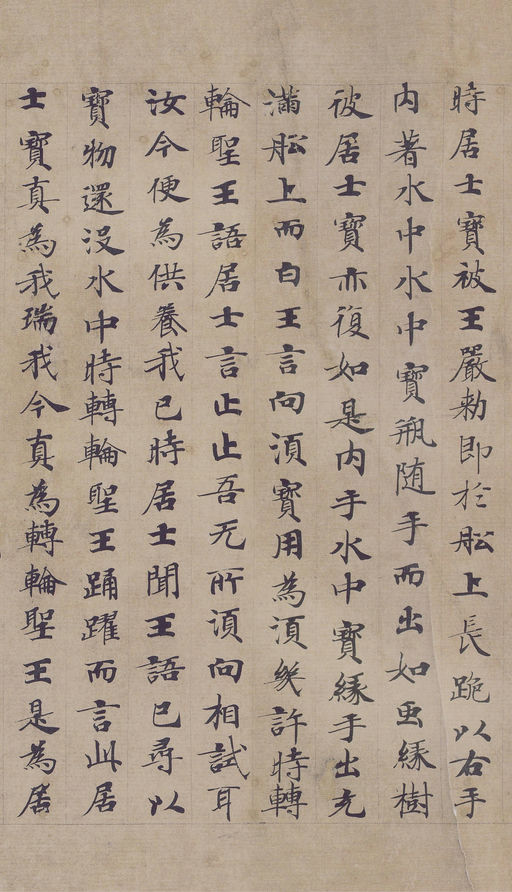 時居士寶被王嚴勑即於舩上長跪以右手
内著水中水中寶瓶随手而出如虫緣樹
彼居士寶亦復如是内手水中寶緣手出充
滿舩上而白王言向湏寶用為湏幾許時轉
輪聖王語居士言止止吾无所湏向相試耳
汝今便為供養我已時居士聞王語已尋以
寶物還没水中時轉輪聖王踊躍而言此居
士寶真為我瑞我今真為轉輪聖王是為居